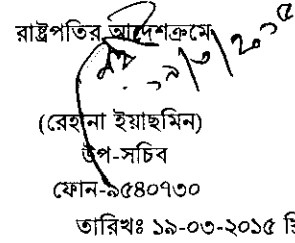 রাষ্ট্রপতির আদেশক্রমে
১৯/৩/২০১৫
(রেহানা ইয়াছমিন)
উপ-সচিব
ফোন-৯৫৪০৭৩০
তারিখঃ ১৯-০৩-২০১৫